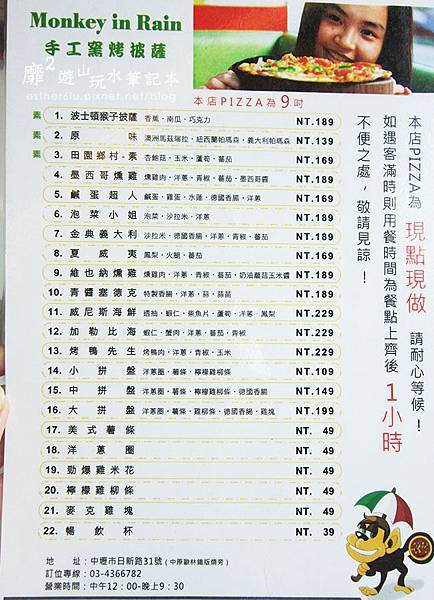 Monkey in Rain
手工窯烤披薩
靡²遊山玩水筆記本
esther6lu.pixnet.net/blog
本店PIZZA為9吋
素 1. 波士頓猴子披薩 香蕉、南瓜、巧克力 NT.189
素 2. 原味 澳洲馬茲瑞拉、紐西蘭帕瑪森、義大利帕瑪森 NT.139
素 3. 田園鄉村-素 杏鮑菇、玉米、蘆筍、蕃茄 NT.169
4. 墨西哥燻雞 燻雞肉、洋蔥、青椒、蕃茄、墨西哥醬 NT.189
5. 鹹蛋超人 鹹蛋、雞蛋、水蓮、德國香腸、洋蔥 NT.169
6. 泡菜小姐 泡菜、沙拉米、洋蔥 NT.189
7. 金典義大利 沙拉米、德國香腸、洋蔥、青椒、蕃茄 NT.189
8. 夏威夷 鳳梨、火腿、蕃茄 NT.169
9. 維也納燻雞 燻雞肉、洋蔥、青椒、蕃茄、奶油蘑菇玉米醬 NT.189
10. 青醬塞德克 特製香腸、洋蔥、蒜、蒜苗 NT.189
11. 威尼斯海鮮 透抽、蝦仁、柴魚片、蘆筍、洋蔥、鳳梨 NT.229
12. 加勒比海 蝦仁、蟹肉、洋蔥、蕃茄、青椒 NT.229
13. 烤鴨先生 烤鴨肉、洋蔥、青椒、玉米 NT.229
14. 小拼盤 洋蔥圈、薯條、檸檬雞柳條 NT.109
15. 中拼盤 洋蔥圈、薯條、檸檬雞柳條、德國香腸 NT.149
16. 大拼盤 洋蔥圈、薯條、雞柳條、德國香腸、雞塊 NT.199
17. 美式薯條 NT. 49
18. 洋蔥圈 NT. 49
19. 勁爆雞米花 NT. 49
20. 檸檬雞柳條 NT. 49
21. 麥克雞塊 NT. 49
22. 暢飲杯 NT. 39
本店PIZZA為 現點現做 請耐心等候！
如遇客滿時則用餐時間為餐點上齊後 1小時
不便之處，敬請見諒！
地 址：中壢市日新路31號（中原歐林鐵版燒旁）
訂位專線：03-4366782
營業時間：中午12：00-晚上9：30